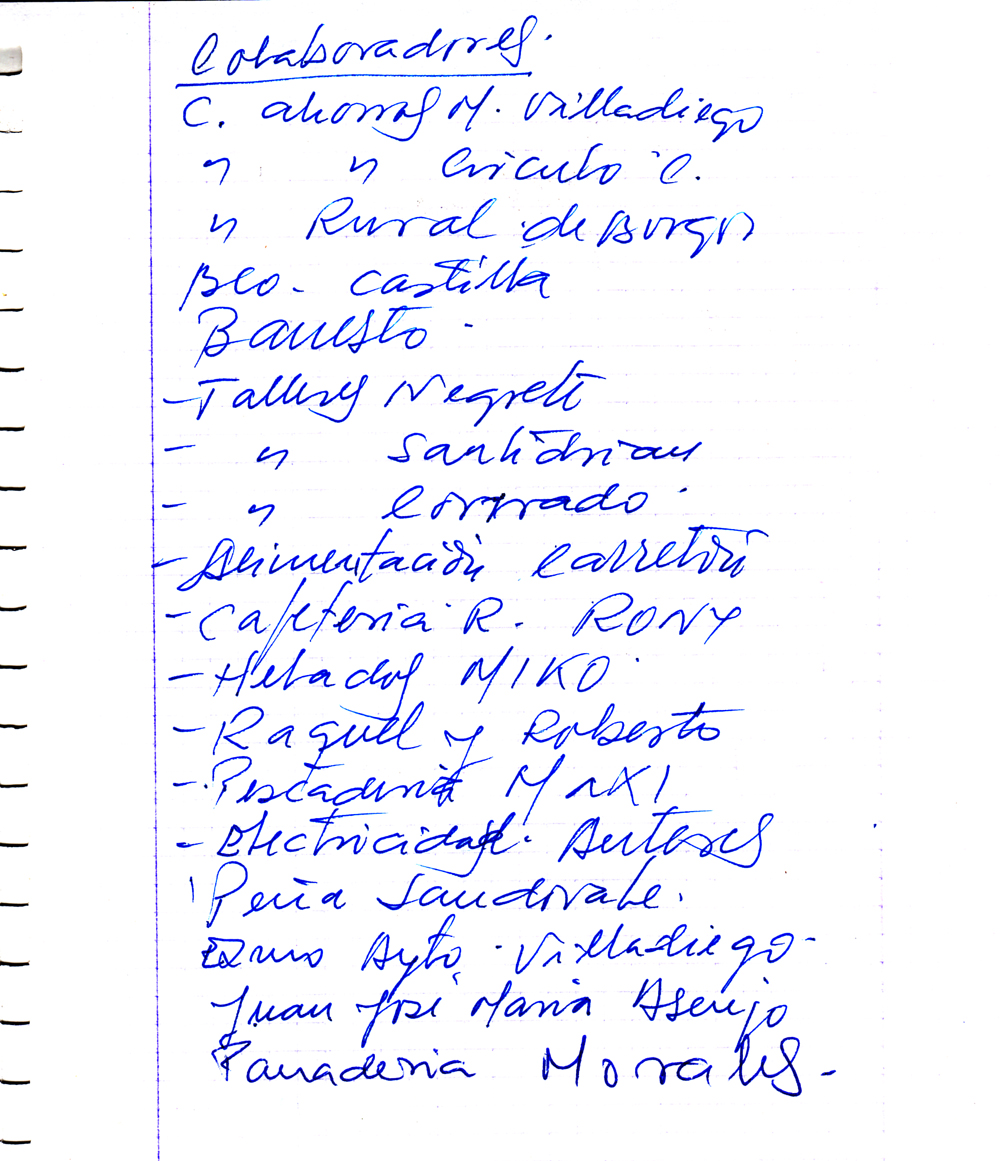 Colaboradores.
C. ahorros M. Villadiego
" " Circulo C.
" Rural de Burgos
Bco. Castilla
Banesto.
- Talleres Negrete
- " Santidrian
- " Corrado.
- Alimentación Carretón
- Cafeteria R. RONY
- Helados MIKO.
- Raquel y Roberto
- Pescaderia MAXI
- Electricidad. Antares
Peña Sandovale.
Exmo Ayto. Villadiego.
Juan José Maria Asenjo
Panaderia Morales.